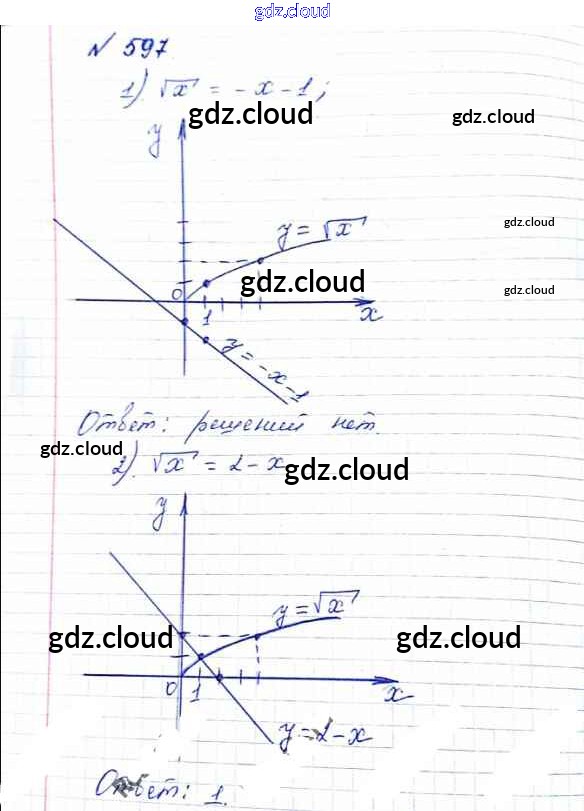 gdz.cloud
№ 597
1). √x = -x-1;
gdz.cloud
gdz.cloud
y
y = √x
gdz.cloud
gdz.cloud
gdz.cloud
0
1
x
y = -x-1
Ответ: решений нет.
gdz.cloud
2). √x = 2-x
gdz.cloud
y
y = √x
gdz.cloud
gdz.cloud
0
1
x
y = 2-x
Ответ: 1.